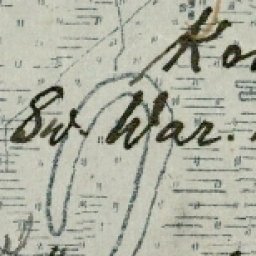 Ko
Sw. War.